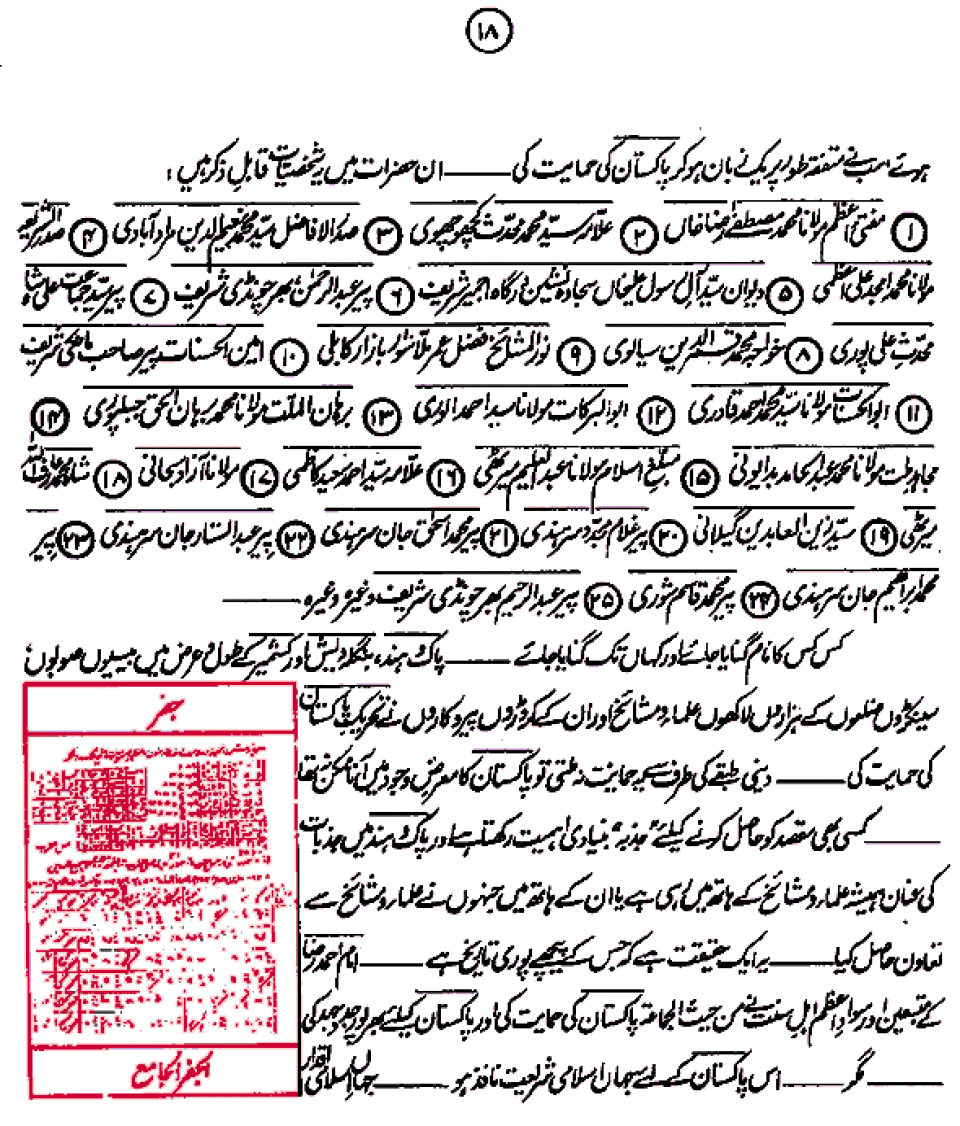 ۱۸
ہوئے سب نے متفقہ طور پر یک زبان ہو کر پاکستان کی حمایت کی ــــــ ان حضرات میں یہ شخصیات قابلِ ذکر ہیں :
۱ مفتی اعظم مولانا محمد مصطفےٰ رضا خاں ۲ علامہ سید محمد محدث کچھوچھوی ۳ صدر الافاضل سید محمد نعیم الدین مراد آبادی ۴ صدر الشریعہ
مولانا محمد امجد علی اعظمی ۵ دیوان سید آل رسول علیخاں سجادہ نشین درگاہ اجمیر شریف ۶ پیر عبدالرحمٰن بھرچونڈی شریف ۷ پیر سید جماعت علی شاہ
محدث علی پوری ۸ خواجہ محمد قمر الدین سیالوی ۹ نور المشائخ فضل عمر ملّا شور بازار کابلی ۱۰ امین الحسنات پیر صاحب مانکی شریف
۱۱ ابوالحسنات مولانا سید محمد احمد قادری ۱۲ ابوالبرکات مولانا سید احمد الوری ۱۳ برہان الملت مولانا محمد برہان الحق جبلپوری ۱۴
مجاہد ملت مولانا محمد عبدالحامد بدایونی ۱۵ مبلغ اسلام مولانا عبدالعلیم میرٹھی ۱۶ علامہ سید احمد سعید کاظمی ۱۷ مولانا آزاد سبحانی ۱۸ شاہ محمد عارف اللہ
میرٹھی ۱۹ سید زین العابدین گیلانی ۲۰ پیر غلام مجدد سرہندی ۲۱ پیر محمد اسحٰق جان سرہندی ۲۲ پیر عبدالستار جان سرہندی ۲۳ پیر
محمد ابراھیم جان سرہندی ۲۴ پیر محمد قاسم مشوری ۲۵ پیر عبدالرحیم بھرچونڈی شریف وغیرہ وغیرہ ــــــ
کس کس کا نام گنایا جائے اور کہاں تک گنایا جائے ــــــ پاک و ہند، بنگلادیش اور کشمیر کے طول و عرض میں بیسیوں صوبوں،
سینکڑوں ضلعوں کے ہزاروں لاکھوں علماء و مشائخ اور ان کے کروڑوں پیروکاروں نے تحریک پاکستان
کی حمایت کی ــــــ دینی طبقے کی طرف سے یہ حمایت نہ ملتی تو پاکستان کا معرض وجود میں آنا ممکن نہ تھا
ــــــ کسی بھی مقصد کو حاصل کرنے کیلئے "جذبہ" بنیادی اہمیت رکھتا ہے اور پاک و ہند میں جذبات
کی عنان ہمیشہ علماء و مشائخ کے ہاتھ میں رہی ہے یا ان کے ہاتھ میں جنہوں نے علماء و مشائخ سے
تعاون حاصل کیا ــــــ یہ ایک حقیقت ہے کہ جس کے پیچھے پوری تاریخ ہے ــــــ امام احمد رضا
کے متبعین اور سوادِ اعظم اہلِ سنت نے من حیث الجماعۃ پاکستان کی حمایت کی اور پاکستان کیلئے بھرپور جدوجہد کی
ــــــ مگر ــــــ اس پاکستان کے لئے جہاں اسلامی شریعت نافذ ہو ــــــ جہاں اسلامی اقدار
جفر
الجفر الجامع